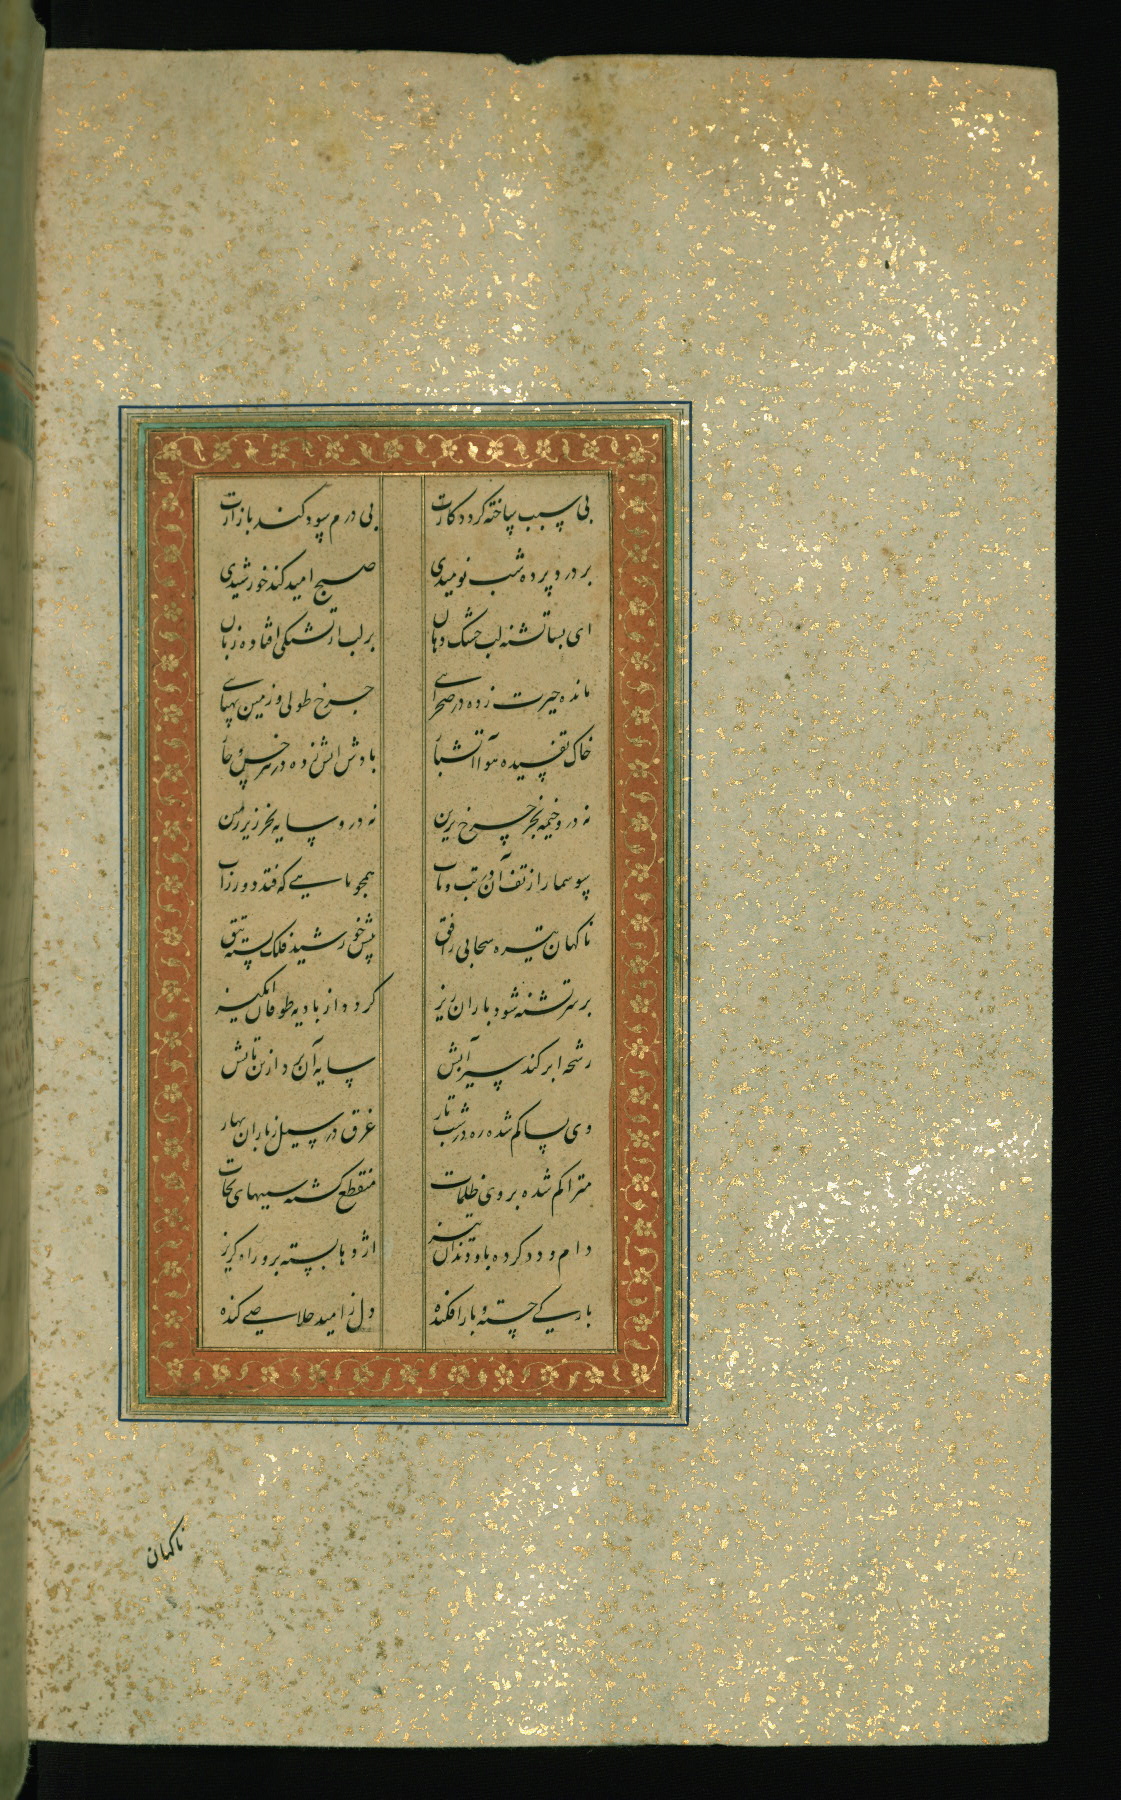 بی سبب ساخته گردد کارت بی درم سود کند بازارت
بر درد پرده شب نومیدی صبح امید کند خورشیدی
ای بسا تشنه لب خشک دهان بر لب از تشنگی افتاده زبان
مانده حیرت زده در صحرایی چرخ طولی و زمین پهنایی
خاک تفسیده هوا آتشبار بادش آتش زده در هر خس و خار
نه در و خیمه بجز چرخ برین نه در و سایه بجز زیر زمین
سوسمار از تف آن در تب و تاب همچو ماهیی که فتد دور ز آب
ناکهان تیره سحابی ز افق پیش خورشید فلک بسته تتق
بر سر تشنه شود باران ریز کردد از بادیه طوفان انکیز
رشحه ابر کند سیرابش سایه آن برد از تن تابش
وی بسا کم شده ره در شب تار غرق در سیل ز باران بهار
متراکم شده بر وی ظلمات منقطع کشته سببهای نجات
دام و دد کرده باو دندان تیز اژدها بسته برو راه کریز
بارکی جسته و بار افکنده دل ز امید خلاصی کنده
ناکهان